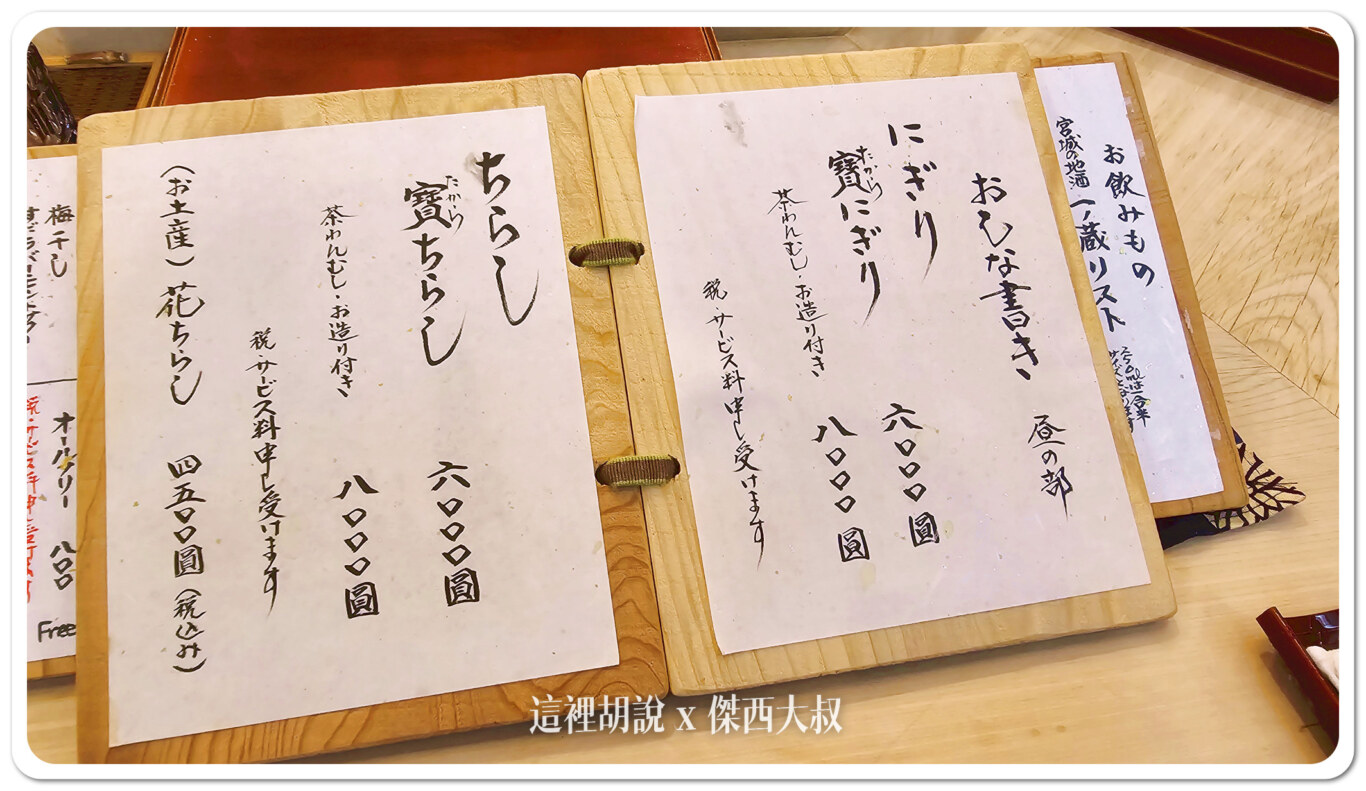 お飲みもの
宮城の地酒 一ノ蔵リスト
おしな書き 昼の部
にぎり 六〇〇〇圓
寶にぎり 八〇〇〇圓
たから
茶わんむし・お造り付き
税・サービス料申し受けます
ちらし 六〇〇〇圓
寶ちらし 八〇〇〇圓
たから
茶わんむし・お造り付き
税・サービス料申し受けます
(お土産)花ちらし 四五〇〇圓(税込み)
梅干し
オールフリー 八〇〇
Free
這裡胡說 x 傑西大叔